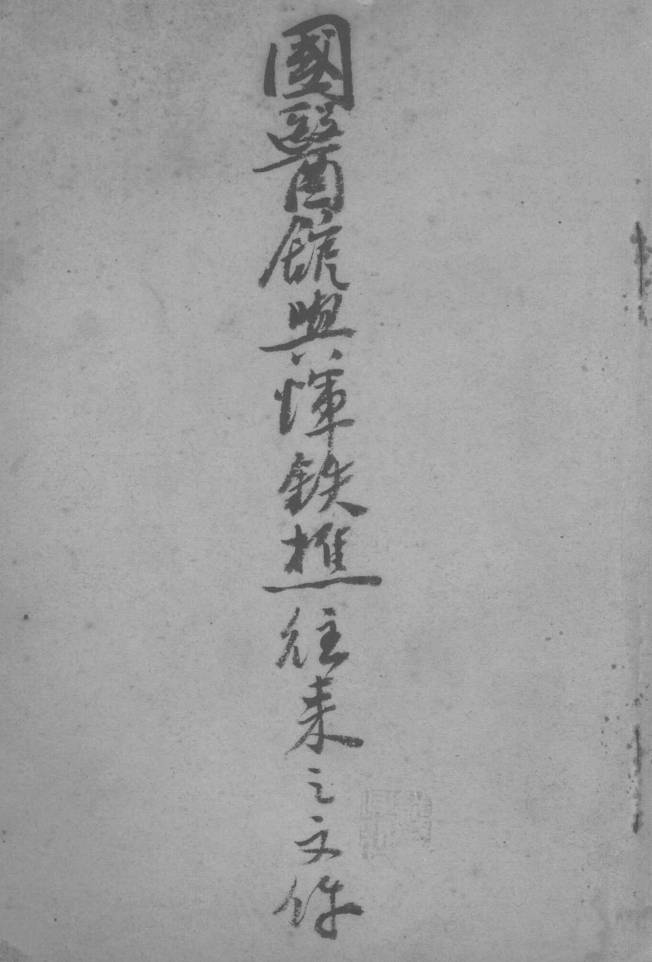 國醫館與惲鉄樵往来之文件